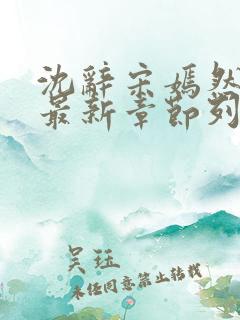 沈辞宋嫣然
最新章节列
吴珏
未经同意禁止转载